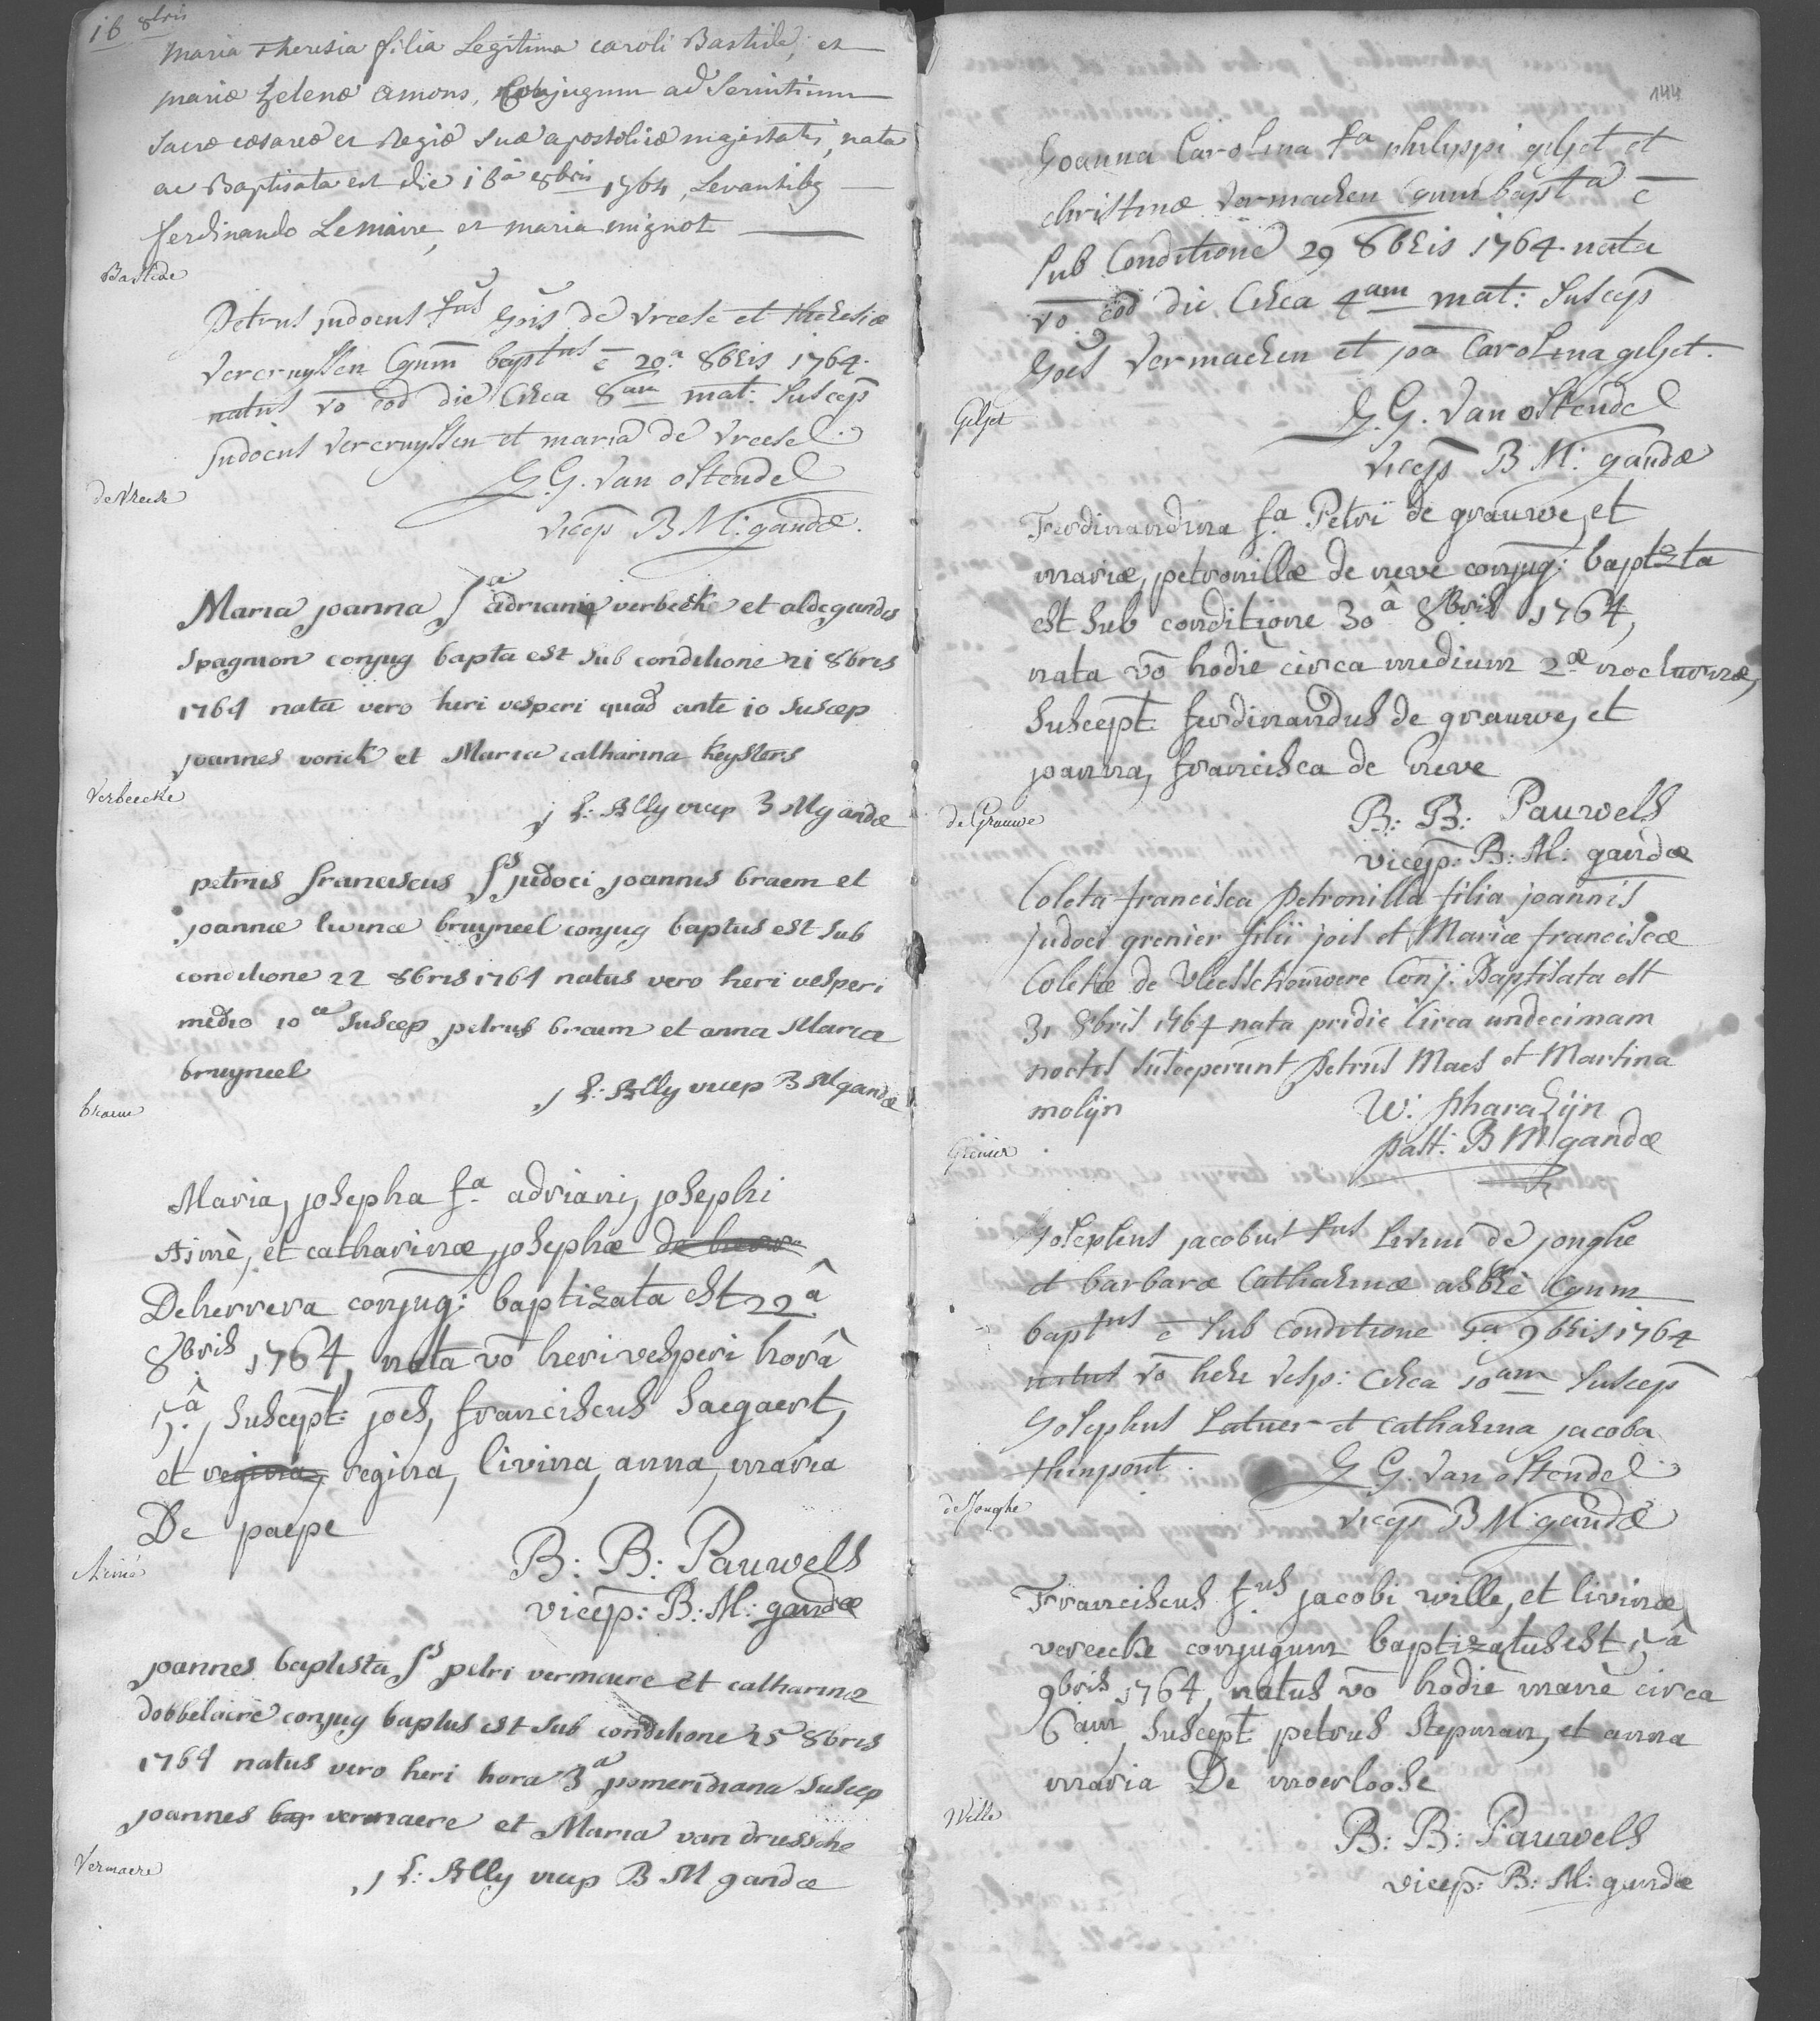 16 8bris
Maria Theresia filia Legitima caroli Bastide, et
mariæ helenæ amons, Conjugum ad Servitium
Sacræ cæsareæ et Regiæ Suæ apostolicæ majestatis, nata
ac Baptisata est die 16a 8bris 1764, Levantibg
ferdinando Lemaire, et maria mignot
Bastide
Petrus judocus fus Gois de Vreese et theresiæ
Vercruyssen Cgum baptus ē 20a 8bris 1764.
natus vō eod die Circa 8am mat: Suscep
judocus Vercruyssen et maria de Vreese
G.G. Van Ostendel
de Vreese
vicep B M: gandæ.
Maria joanna fa adriani verbecke et aldegundis
Spagnion conjug bapta est sub conditione 21 8bris
1764 nata vero heri vesperi quad ante 10 Suscep
joannes vonck et Maria catharina keysters
Verbeecke
j L: Ally vicep B M gandæ
petrus franciscus fs judoci joannis braem et
joannæ livinæ bruyneel conjug baptus est sub
conditione 22 8bris 1764 natus vero heri vesperi
medio 10æ Suscep petrus braem et anna Maria
bruyneel
j L: Ally vicep B M gandæ
braem
Maria, josepha fa adriani, josephi
Aimè, et catharinæ, josephæ
Deherrera conjug: baptizata est 22â
8bris 1764, nata vō heri vesperi horâ
5â, Suscept: joēs, franciscus Saegaert,
et regina, regina, livina, anna, maria
De paepe
B: B: Pauwels
Aimé
vicep: B: M: gandæ
joannes baptista fs petri vermaere et catharinæ
dobbelaere conjug baptus est sub conditione 25 8bris
1764 natus vero heri hora 3a pomeridiana Suscep
joannes bap vermaere et Maria van driessche
Vermaere
j L: Ally vicep B M gandæ
144
Joanna Carolina fa philippi geljet et
christinæ Vermachen Cgum bapta ē
Sub Conditione 29 8bris 1764. nata
vō eod die Circa 4am mat: Suscep
Goēs Vermachen et joa Carolina geljet.
Geljet
G.G. Van Ostendel
vicep B M: gandæ
Ferdinandina fa Petri de grauwe, et
mariæ, petronillæ de neve conjug: baptzta
est sub conditione 30â 8bris 1764,
nata vō hodie circa medium 2æ nocturnæ,
Suscept: ferdinandus de grauwe, et
joanna, francisca de neve
de Grauwe
B: B: Pauwels
vicep: B: M: gandæ
Coleta francisca Petronilla filia joannis
judoci grenier filii jois et Mariæ franciscæ
Coletæ de Vleesschouwere Conj: Baptisata est
31 8bris 1764 nata pridie Circa undecimam
noctis Susceperunt Petrus Maes et Martina
molijn
W: pharazijn
Grenier
past: B M gandæ
Josephus jacobus fus Livini de jonghe
et barbaræ Catharinæ Cgum
baptus ē Sub Conditione 5a 9bris 1764
natus vō here Vesp: Circa 10am Suscep
Josephus Latuer et Catharina jacoba
thinpont.
G G. Van Ostendel
de Jonghe
vicep B M: gandæ
Franciscus fus jacobi wille, et livinæ
vereecke conjugum baptizatus est 5â
9bris 1764, natus vō hodie manè circa
6am, Suscept petrus Stepman, et anna
maria De moerloose
Wille
B: B: Pauwels
vicep: B: M: gandæ